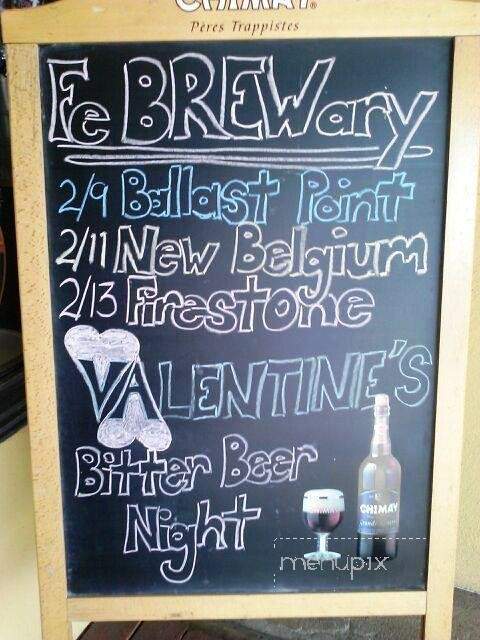 CHIMAY®
Pères Trappistes
FeBREWary
2/9 Ballast Point
2/11 New Belgium
2/13 Firestone
VALENTINE'S
Bitter Beer
Night
CHIMAY
menupix